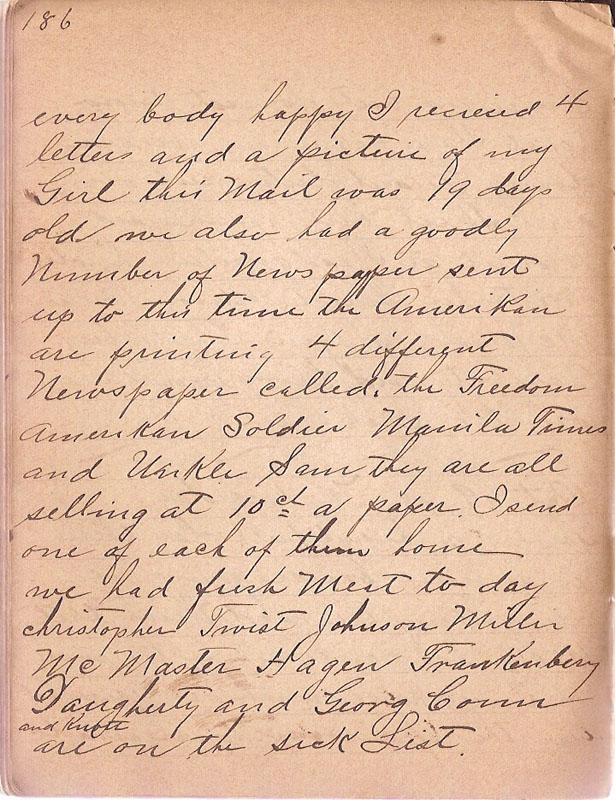 186
every body happy I recieed 4
letters and a picture of my
Girl this Mail was 19 days
old we also had a goodly
Number of News paper sent
up to this time the Amerikan
are printing 4 different
Newspaper called. the Freedom
Amerikan Soldier Manila Times
and Unkle Sam they are all
selling at 10 ct a paper. I send
one of each of them home
we had fresh Meet to day
christopher Twist Johnson Miller
Mc Master Hagen Frankenbery
Daugherty and Georg Conn
and
are on the sick List.